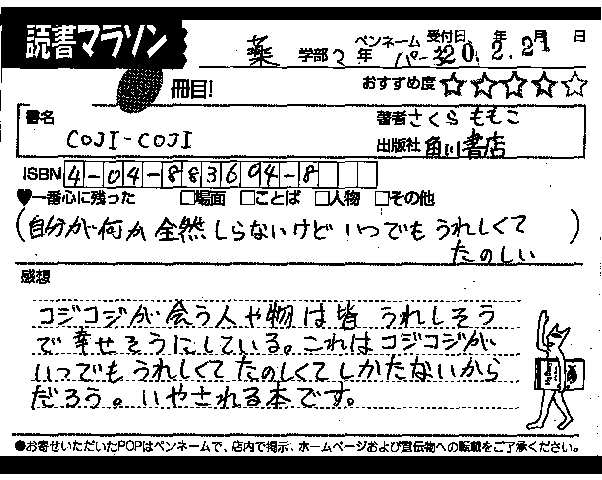 読書マラソン
薬 学部 2 年 ペンネーム パー 受付日 20. 2. 21 年 月 日
冊目! おすすめ度 ☆☆☆☆☆
書名 COJI-COJI
著者 さくらももこ
出版社 角川書店
ISBN 4-04-883694-8
♥一番心に残った □場面 □ことば □人物 □その他
(自分が何か全然しらないけど いつでも うれしくて
たのしい)
感想
コジコジが会う人や物は皆 うれしそう
で幸せそうにしている。これはコジコジが
いつでもうれしくてたのしくてしかたないから
だろう。いやされる本です。
●お寄せいただいたPOPはペンネームで、店内で掲示、ホームページおよび宣伝物への転載をご了承ください。